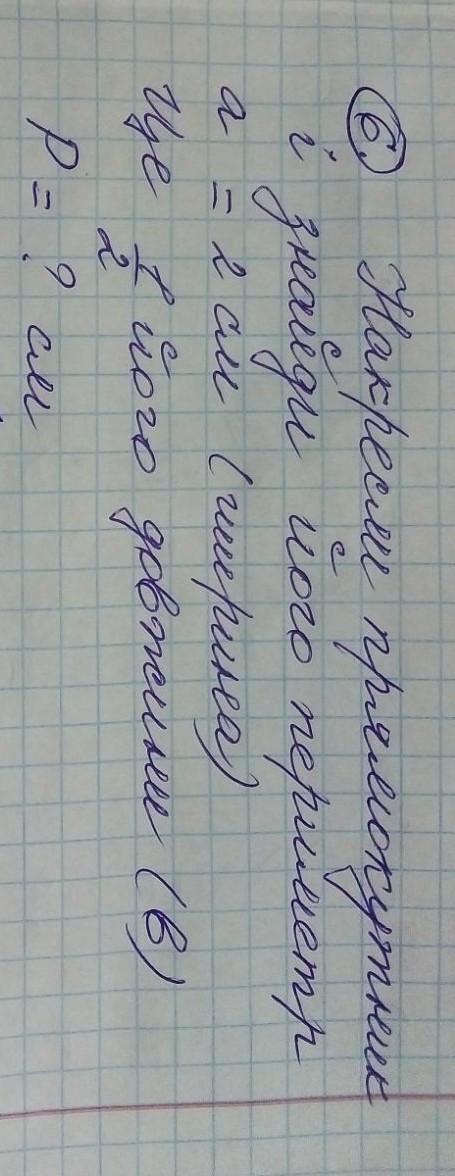 6. Накресли прямокутник
і знайди його периметр
a = 2 см (ширина)
Це 1/2 його довжини (в)
P = ? см